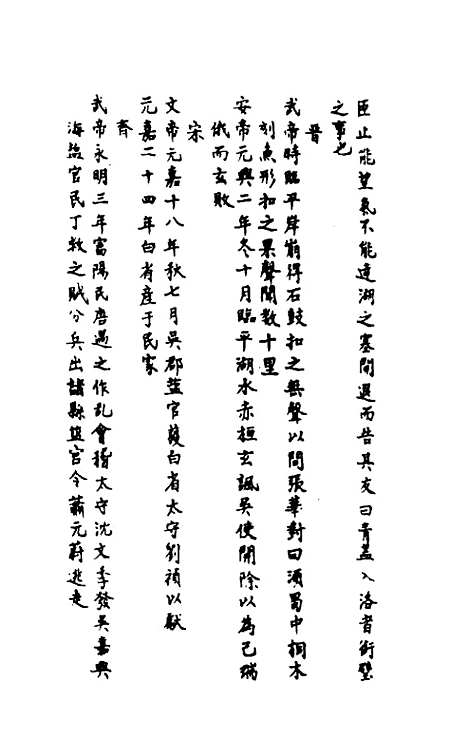 臣止能望氣不能達湖之塞開退而告其友曰青蓋入洛者銜璧
之事也
晉
武帝時臨平岸崩得石鼓扣之無聲以問張華對曰須蜀中桐木
刻魚形扣之果聲聞數十里
安帝元興二年冬十月臨平湖水赤桓玄諷吳使開除以為己瑞
俄而玄敗
宋
文帝元嘉十八年秋七月吳郡鹽官獲白雀太守劉禎以獻
元嘉二十四年白雀產于民家
齊
武帝永明三年富陽民唐㝢之作乱會稽太守沈文季發吳嘉興
海鹽官民丁救之賊分兵出諸縣鹽官令蕭元蔚逃走